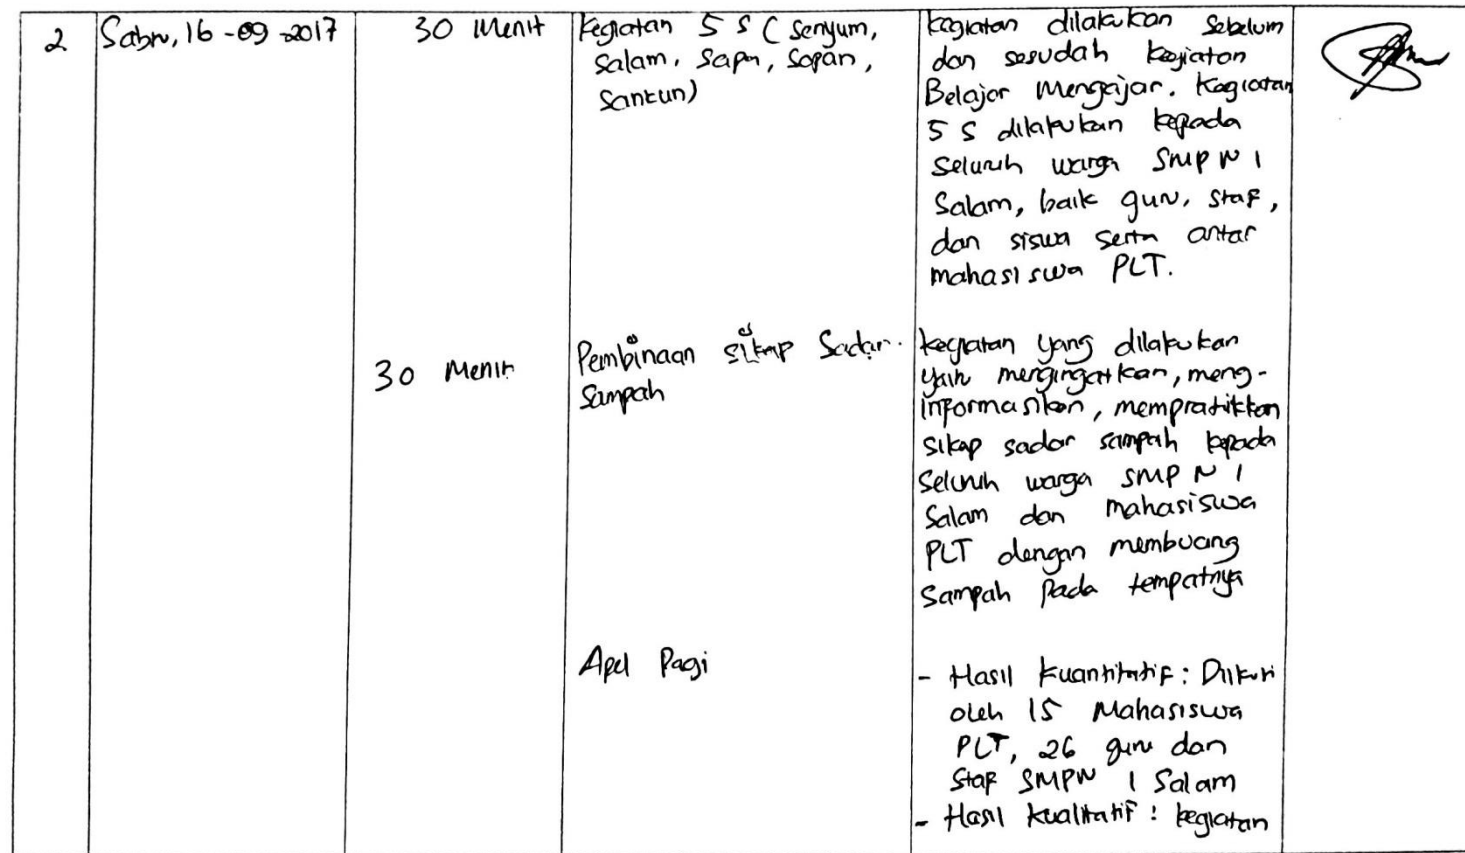 2
Sabtu, 16-09-2017
30 Menit
Kegiatan 5 S (Senyum,
Salam, Sapa, Sopan,
Santun)
Kegiatan dilakukan Sebelum
dan sesudah kegiatan
Belajar Mengajar. Kegiatan
5 S dilakukan kepada
Seluruh warga SMP N 1
Salam, baik guru, staf,
dan siswa serta antar
mahasiswa PLT.
30 Menit
Pembinaan sikap Sadar
Sampah
Kegiatan yang dilakukan
yaitu mengingatkan, meng-
informasikan, mempratikkan
sikap sadar sampah kepada
Seluruh warga SMP N 1
Salam dan mahasiswa
PLT dengan membuang
Sampah Pada tempatnya
Apel Pagi
- Hasil Kuantitatif: Diikuti
oleh 15 Mahasiswa
PLT, 26 guru dan
Staf SMPN 1 Salam
- Hasil Kualitatif: kegiatan